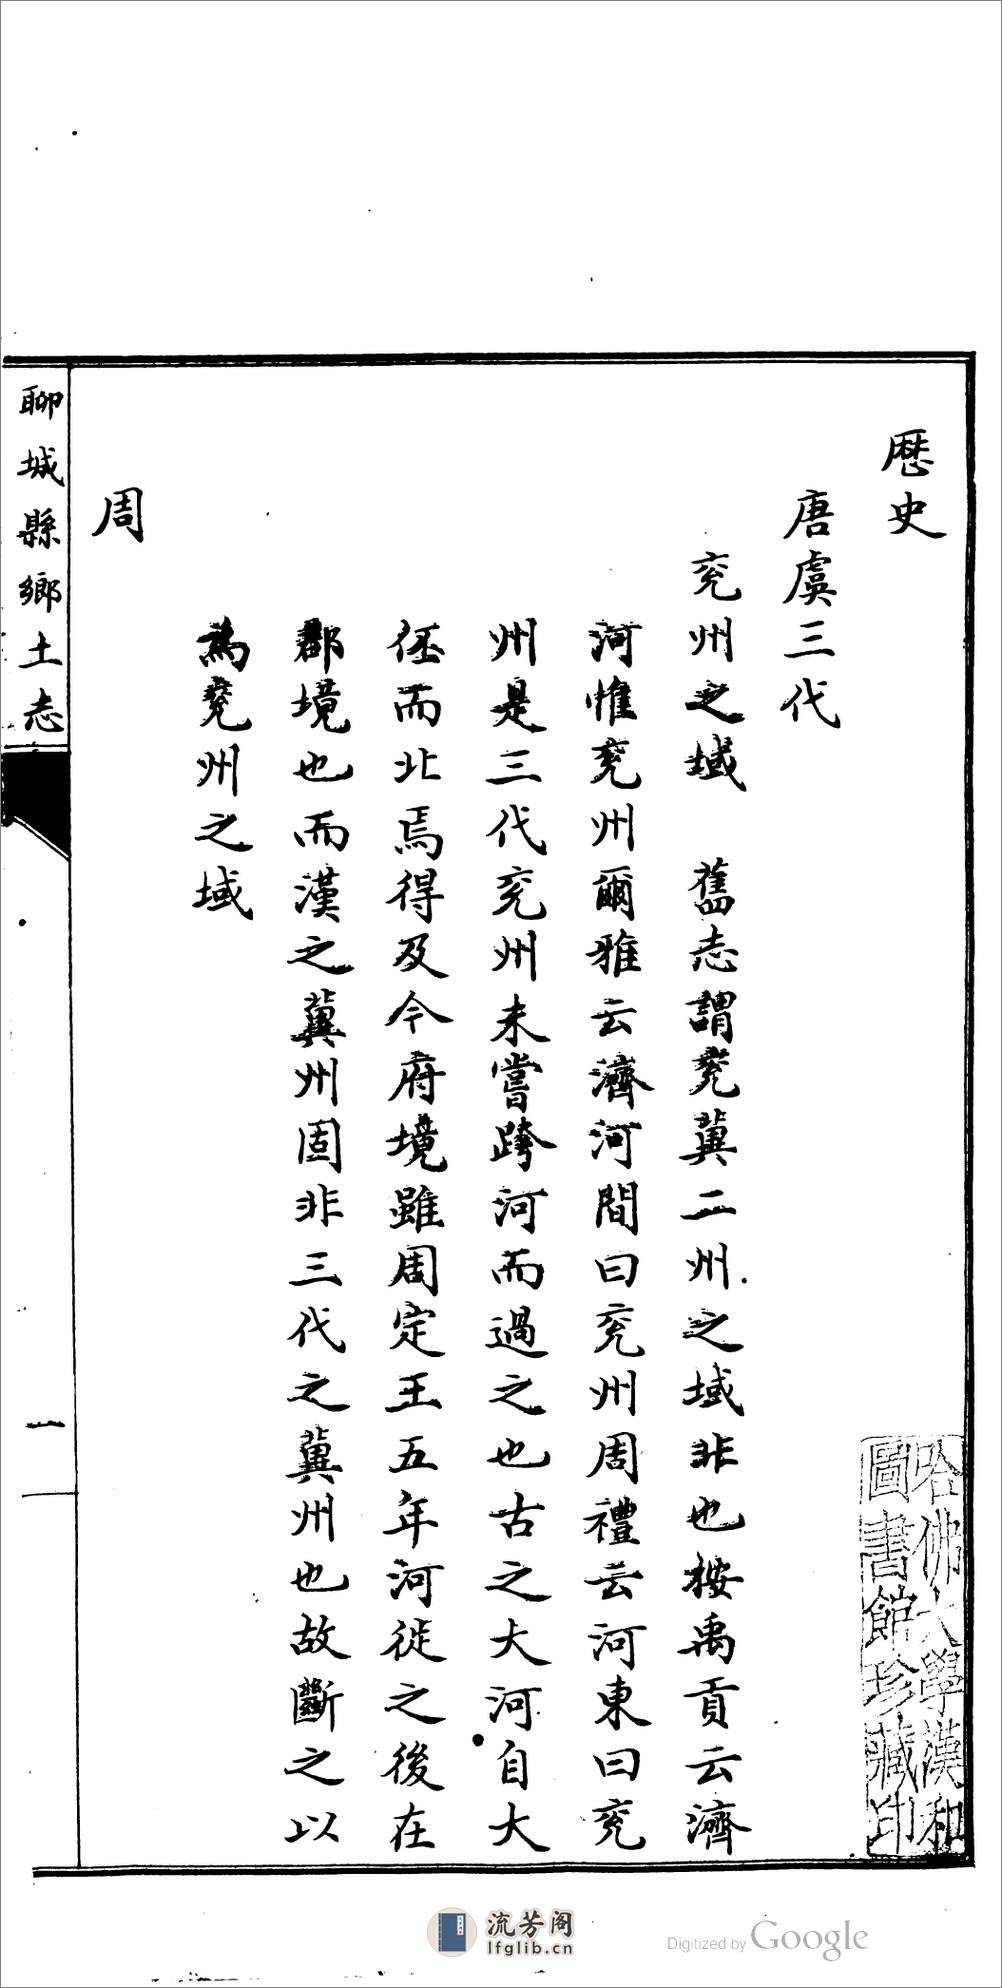 歷史
唐虞三代
兖州之域　舊志謂兖冀二州之域非也按禹貢云濟
河惟兖州爾雅云濟河間曰兖州周禮云河東曰兖
州是三代兖州未嘗跨河而過之也古之大河自大
伾而北焉得及今府境雖周定王五年河徙之後在
郡境也而漢之冀州固非三代之冀州也故斷之以
為兖州之域
周
聊城縣鄉土志
一
哈佛大學漢和
圖書館珍藏印
流芳阁
lfglib.cn
Digitized by Google